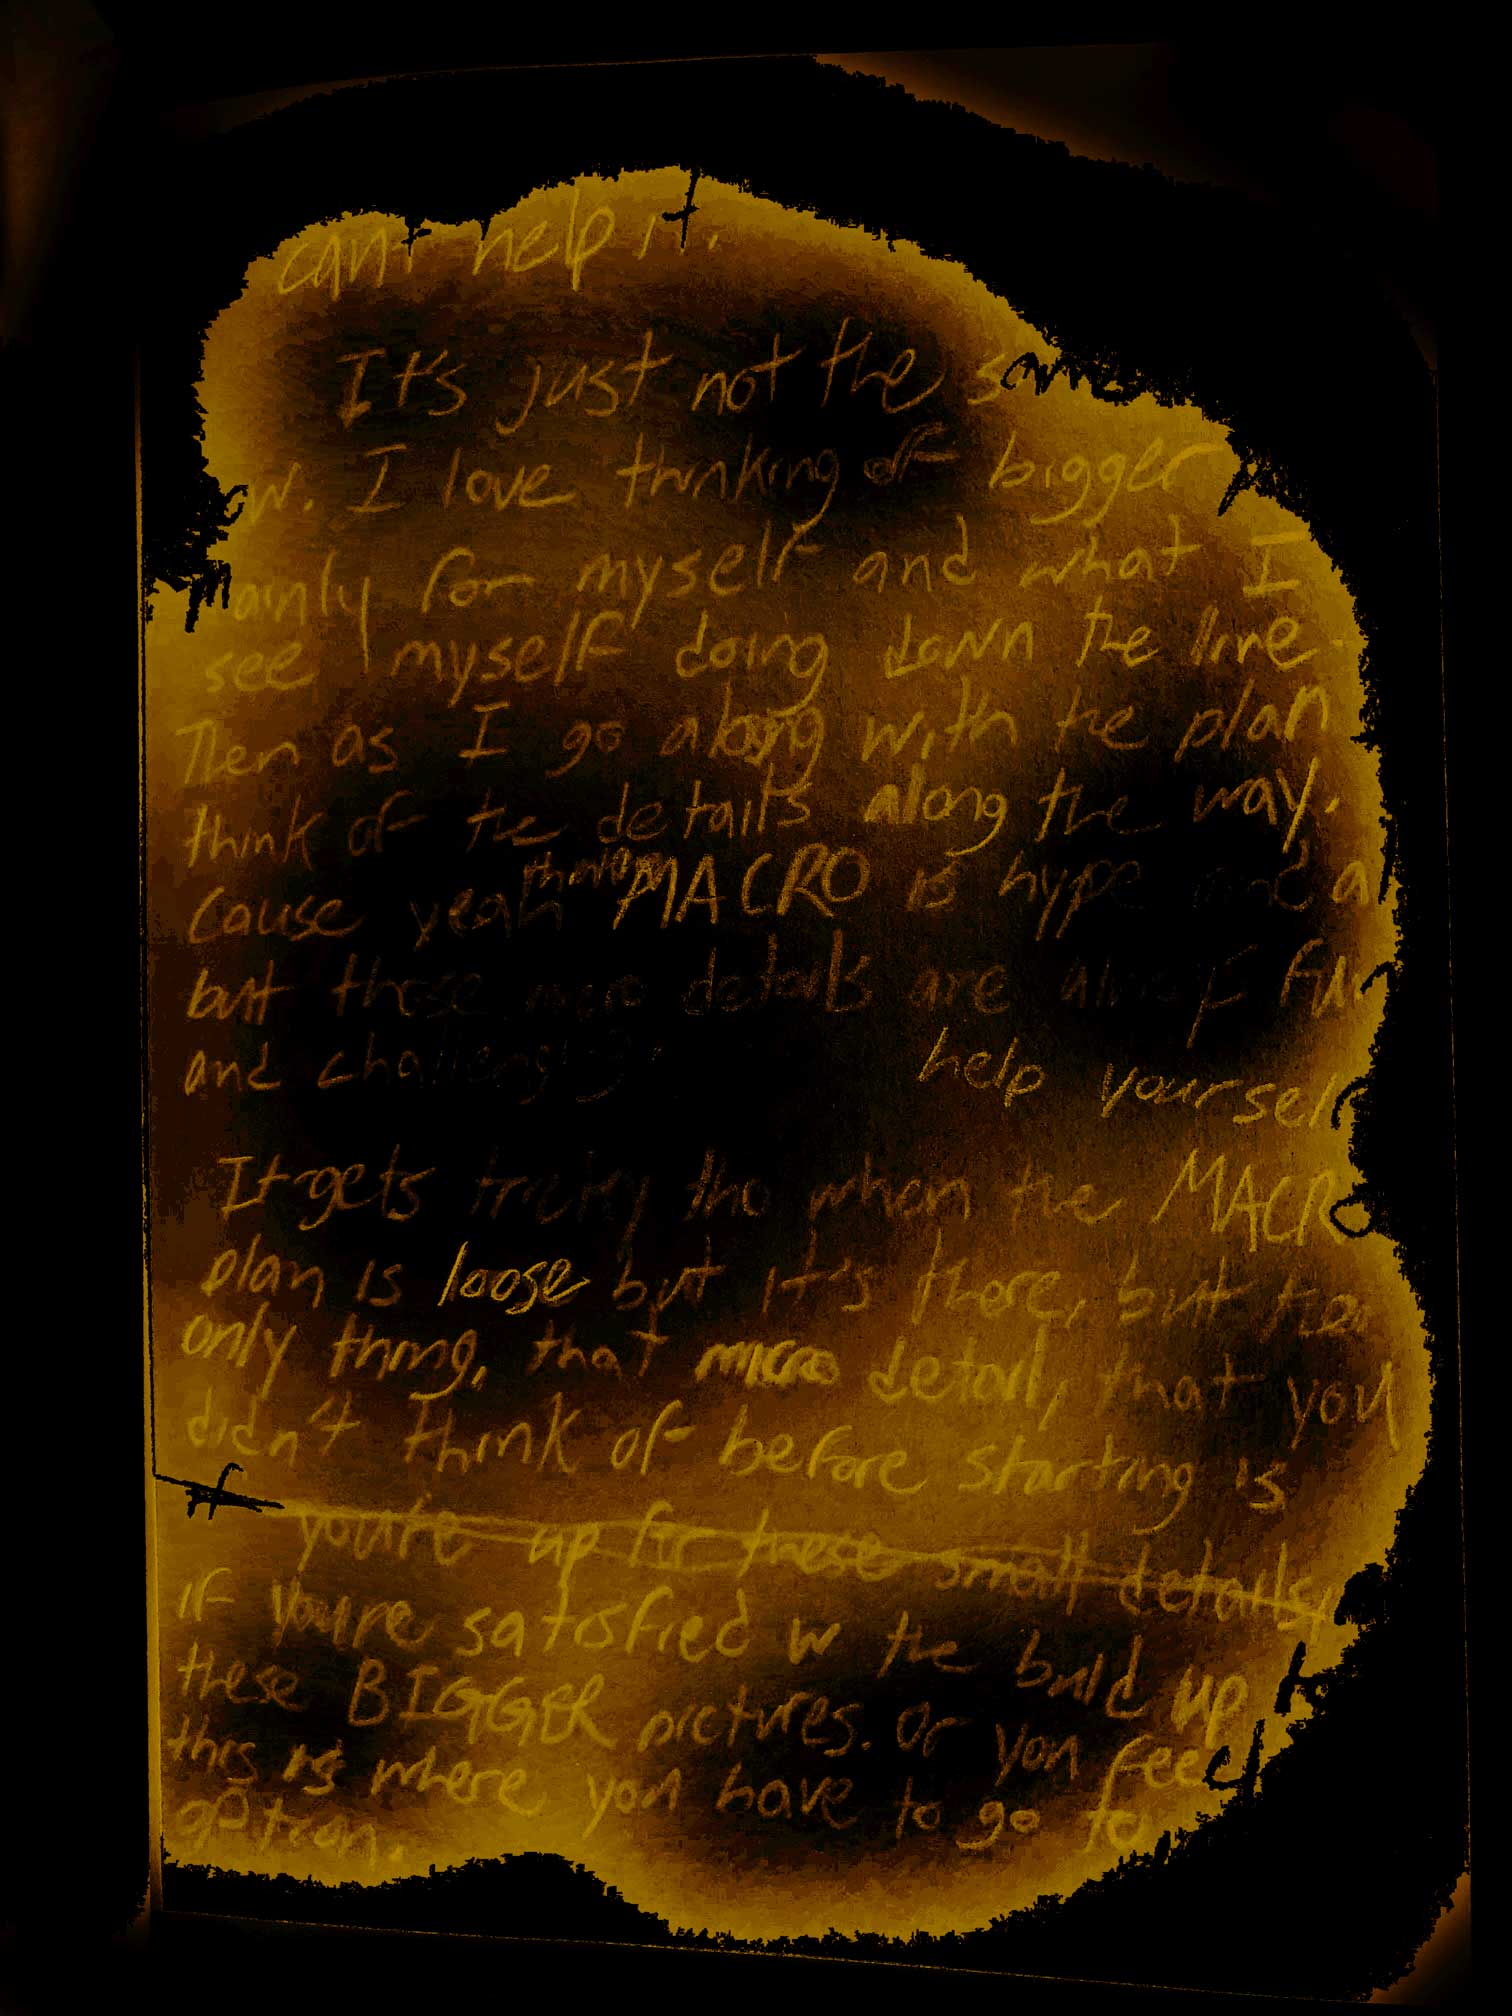 can't help it.
It's just not the same
I love thinking of bigger
mainly for myself and what I
see myself doing down the line
Then as I go along with the plan
think of the details along the way.
Cause yeah MACRO is hype and
but those micro details are fun
and challenging
help yourself
It gets tricky tho when the MACRO
plan is loose but it's there, but the
only thing, that micro detail, that you
didn't think of before starting is
you're up for these small details,
if you're satisfied w the build up
these BIGGER pictures. Or you feel
this is where you have to go to
option.